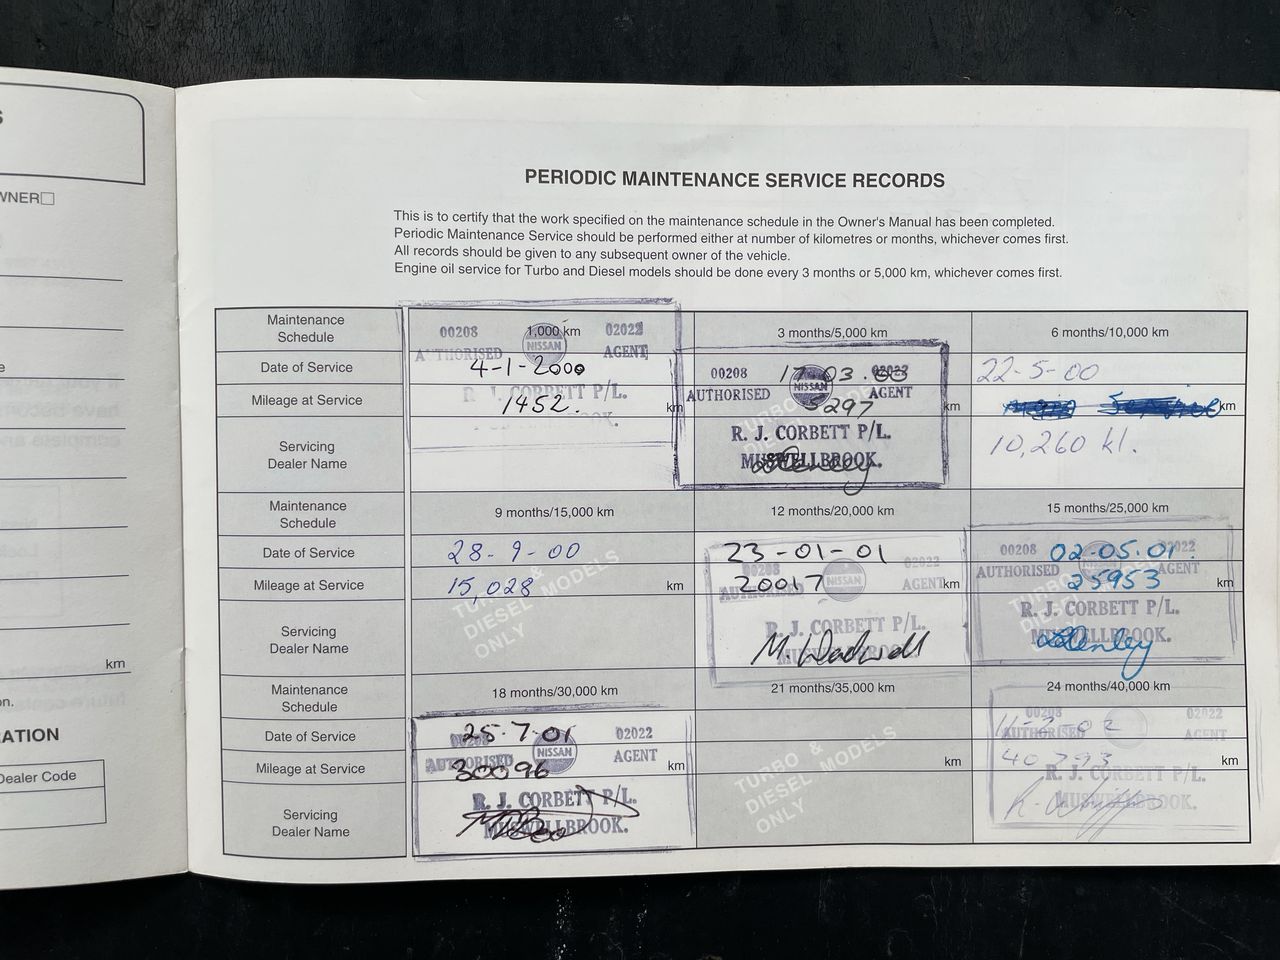 S
WNER☐
e
km
on.
ATION
Dealer Code
PERIODIC MAINTENANCE SERVICE RECORDS
This is to certify that the work specified on the maintenance schedule in the Owner's Manual has been completed.
Periodic Maintenance Service should be performed either at number of kilometres or months, whichever comes first.
All records should be given to any subsequent owner of the vehicle.
Engine oil service for Turbo and Diesel models should be done every 3 months or 5,000 km, whichever comes first.
Maintenance Schedule
1,000 km
3 months/5,000 km
6 months/10,000 km
Date of Service
4-1-2000
17.03.00
22-5-00
Mileage at Service
1452. km
5297 km
km
Servicing Dealer Name
10,260 kl.
00208 NISSAN 02022
AUTHORISED AGENT
R. J. CORBETT P/L.
00208 NISSAN 02022
AUTHORISED AGENT
R. J. CORBETT P/L.
MUSWELLBROOK.
Maintenance Schedule
9 months/15,000 km
12 months/20,000 km
15 months/25,000 km
Date of Service
28-9-00
23-01-01
02.05.01.
Mileage at Service
15,028 km
20017 km
25953 km
Servicing Dealer Name
TURBO & DIESEL MODELS ONLY
00208 NISSAN 02022
AUTHORISED AGENT
R. J. CORBETT P/L.
MUSWELLBROOK.
00208 02022
AUTHORISED AGENT
R. J. CORBETT P/L.
MUSWELLBROOK.
Maintenance Schedule
18 months/30,000 km
21 months/35,000 km
24 months/40,000 km
Date of Service
25.7.01
11-2-02
Mileage at Service
30096 km
km
40793 km
Servicing Dealer Name
00208 NISSAN 02022
AUTHORISED AGENT
R. J. CORBETT P/L.
MUSWELLBROOK.
TURBO & DIESEL MODELS ONLY
00208 02022
AUTHORISED AGENT
R. J. CORBETT P/L.
MUSWELLBROOK.